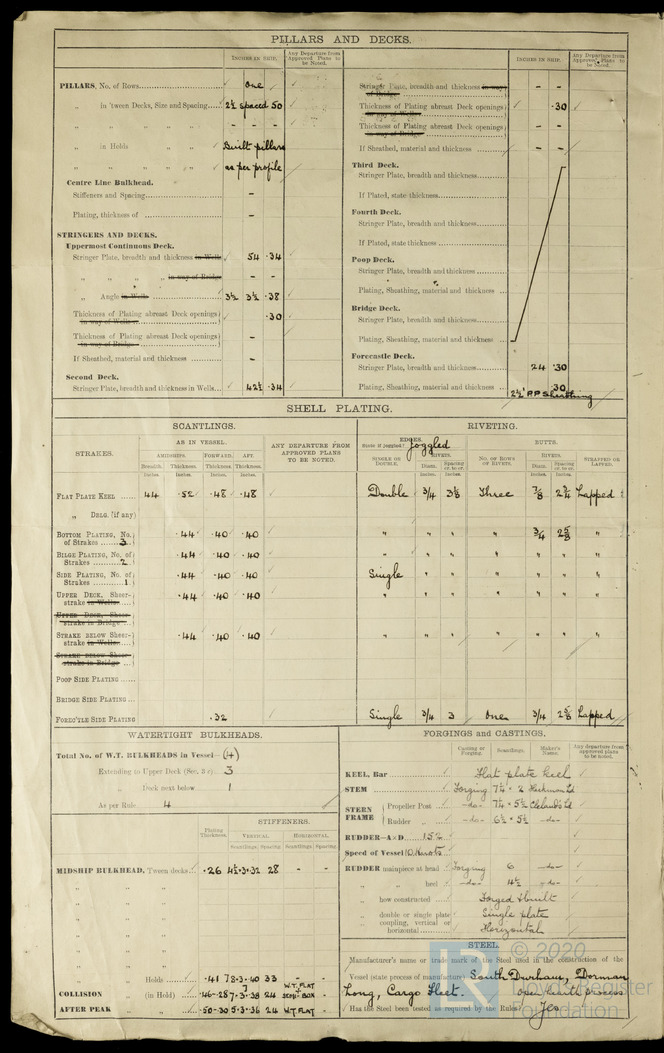 PILLARS AND DECKS.
INCHES IN SHIP.
Any Departure from Approved Plans to be Noted.
PILLARS, No. of Rows one
„ in 'tween Decks, Size and Spacing 2½ spaced 50
„ „ „ „ „ - - -
„ in Holds „ „ Built pillars
„ „ „ „ as per profile
Centre Line Bulkhead.
Stiffeners and Spacing -
Plating, thickness of -
STRINGERS AND DECKS.
Uppermost Continuous Deck.
Stringer Plate, breadth and thickness in Wells 54 .34
„ „ „ „ in way of Bridge - -
„ Angle in Wells 3½ 3½ .38
Thickness of Plating abreast Deck openings) in way of Wells .30
Thickness of Plating abreast Deck openings) in way of Bridge -
If Sheathed, material and thickness -
Second Deck.
Stringer Plate, breadth and thickness in Wells 42½ .34
INCHES IN SHIP.
Any Departure from Approved Plans to be Noted.
Stringer Plate, breadth and thickness in way of Bridge - -
Thickness of Plating abreast Deck openings) in way of Wells .30
Thickness of Plating abreast Deck openings) in way of Bridge - -
If Sheathed, material and thickness - -
Third Deck.
Stringer Plate, breadth and thickness
If Plated, state thickness
Fourth Deck.
Stringer Plate, breadth and thickness
If Plated, state thickness
Poop Deck.
Stringer Plate, breadth and thickness
Plating, Sheathing, material and thickness
Bridge Deck.
Stringer Plate, breadth and thickness
Plating, Sheathing, material and thickness
Forecastle Deck.
Stringer Plate, breadth and thickness 24 .30
Plating, Sheathing, material and thickness .30
2½" P.P. Sheathing
SHELL PLATING.
SCANTLINGS.
RIVETING.
STRAKES.
AS IN VESSEL.
AMIDSHIPS. FORWARD. AFT.
Breadth. Thickness. Thickness. Thickness.
Inches. Inches. Inches. Inches.
ANY DEPARTURE FROM APPROVED PLANS TO BE NOTED.
EDGES.
State if joggled? Joggled
SINGLE OR DOUBLE.
RIVETS.
Diam. Spacing cr. to cr.
BUTTS.
NO. OF ROWS OF RIVETS.
RIVETS.
Diam. Spacing cr. to cr.
STRAPPED OR LAPPED.
FLAT PLATE KEEL 44 .52 .48 .48 Double 3/4 3⅛ Three 7/8 Lapped
„ DBLG. (if any)
BOTTOM PLATING, No. of Strakes 3 .44 .40 .40 „ „ „ „ 3/4 2⅝ „
BILGE PLATING, No. of Strakes 2 .44 .40 .40 „ „ „ „ „ „ „
SIDE PLATING, No. of Strakes 1 .44 .40 .40 Single „ „ „ „ „ „
UPPER DECK, Sheer-strake in Wells .44 .40 .40 „ „ „ „ „ „ „
UPPER DECK, Sheer-strake in Bridge
STRAKE BELOW Sheer-strake in Wells .44 .40 .40 „ „ „ „ „ „ „
STRAKE BELOW Sheer-strake in Bridge
POOP SIDE PLATING
BRIDGE SIDE PLATING
FOREC'TLE SIDE PLATING .32 Single 3/4 3 One 3/4 2⅝ Lapped
WATERTIGHT BULKHEADS.
Total No. of W.T. BULKHEADS in Vessel— (4)
Extending to Upper Deck (Sec. 3 c) 3
„ Deck next below 1
As per Rule 4
Plating Thickness.
STIFFENERS.
VERTICAL. HORIZONTAL.
Scantlings. Spacing Scantlings. Spacing
MIDSHIP BULKHEAD, Tween decks .26 28 - -
„ „
„ „
„ „
„ „
„ „
Holds .40 33
COLLISION „ (in Hold) 7.3.38 24 W.T. FLAT + SEMI-BOX
AFTER PEAK „ „ .50-30 5.3.36 24 W.T. FLAT -
FORGINGS and CASTINGS.
Casting or Forging. Scantlings. Maker's Name. Any departure from approved plans to be noted.
KEEL, Bar Flat plate keel
STEM Forging
STERN FRAME { Propeller Post -do- 7¼ × 5½
{ Rudder „ -do- 6½ × 5½ -do-
RUDDER—A×D 152
Speed of Vessel 10 Knots
RUDDER mainpiece at head Forging 6 -do-
„ „ heel -do- 4½ -do-
„ how constructed Forged & built
„ double or single plate Single plate
„ coupling, vertical or horizontal Horizontal
STEEL.
Manufacturer's name or trade mark of the Steel used in the construction of the
Vessel (state process of manufacture) South Durham, Dorman
Long, Cargo Fleet. open hearth process
Has the Steel been tested as required by the Rules? Yes
© 2020
Lloyd's Register
Foundation
LR